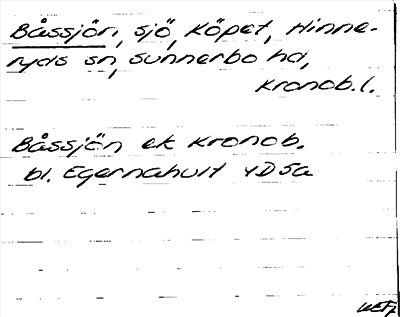 Båssjön, sjö, Köpet, Hinne-
ryds sn, Sunnerbo hd,
Kronob.l.
Båssjön ek Kronob.
bl. Egernahult 4D5a